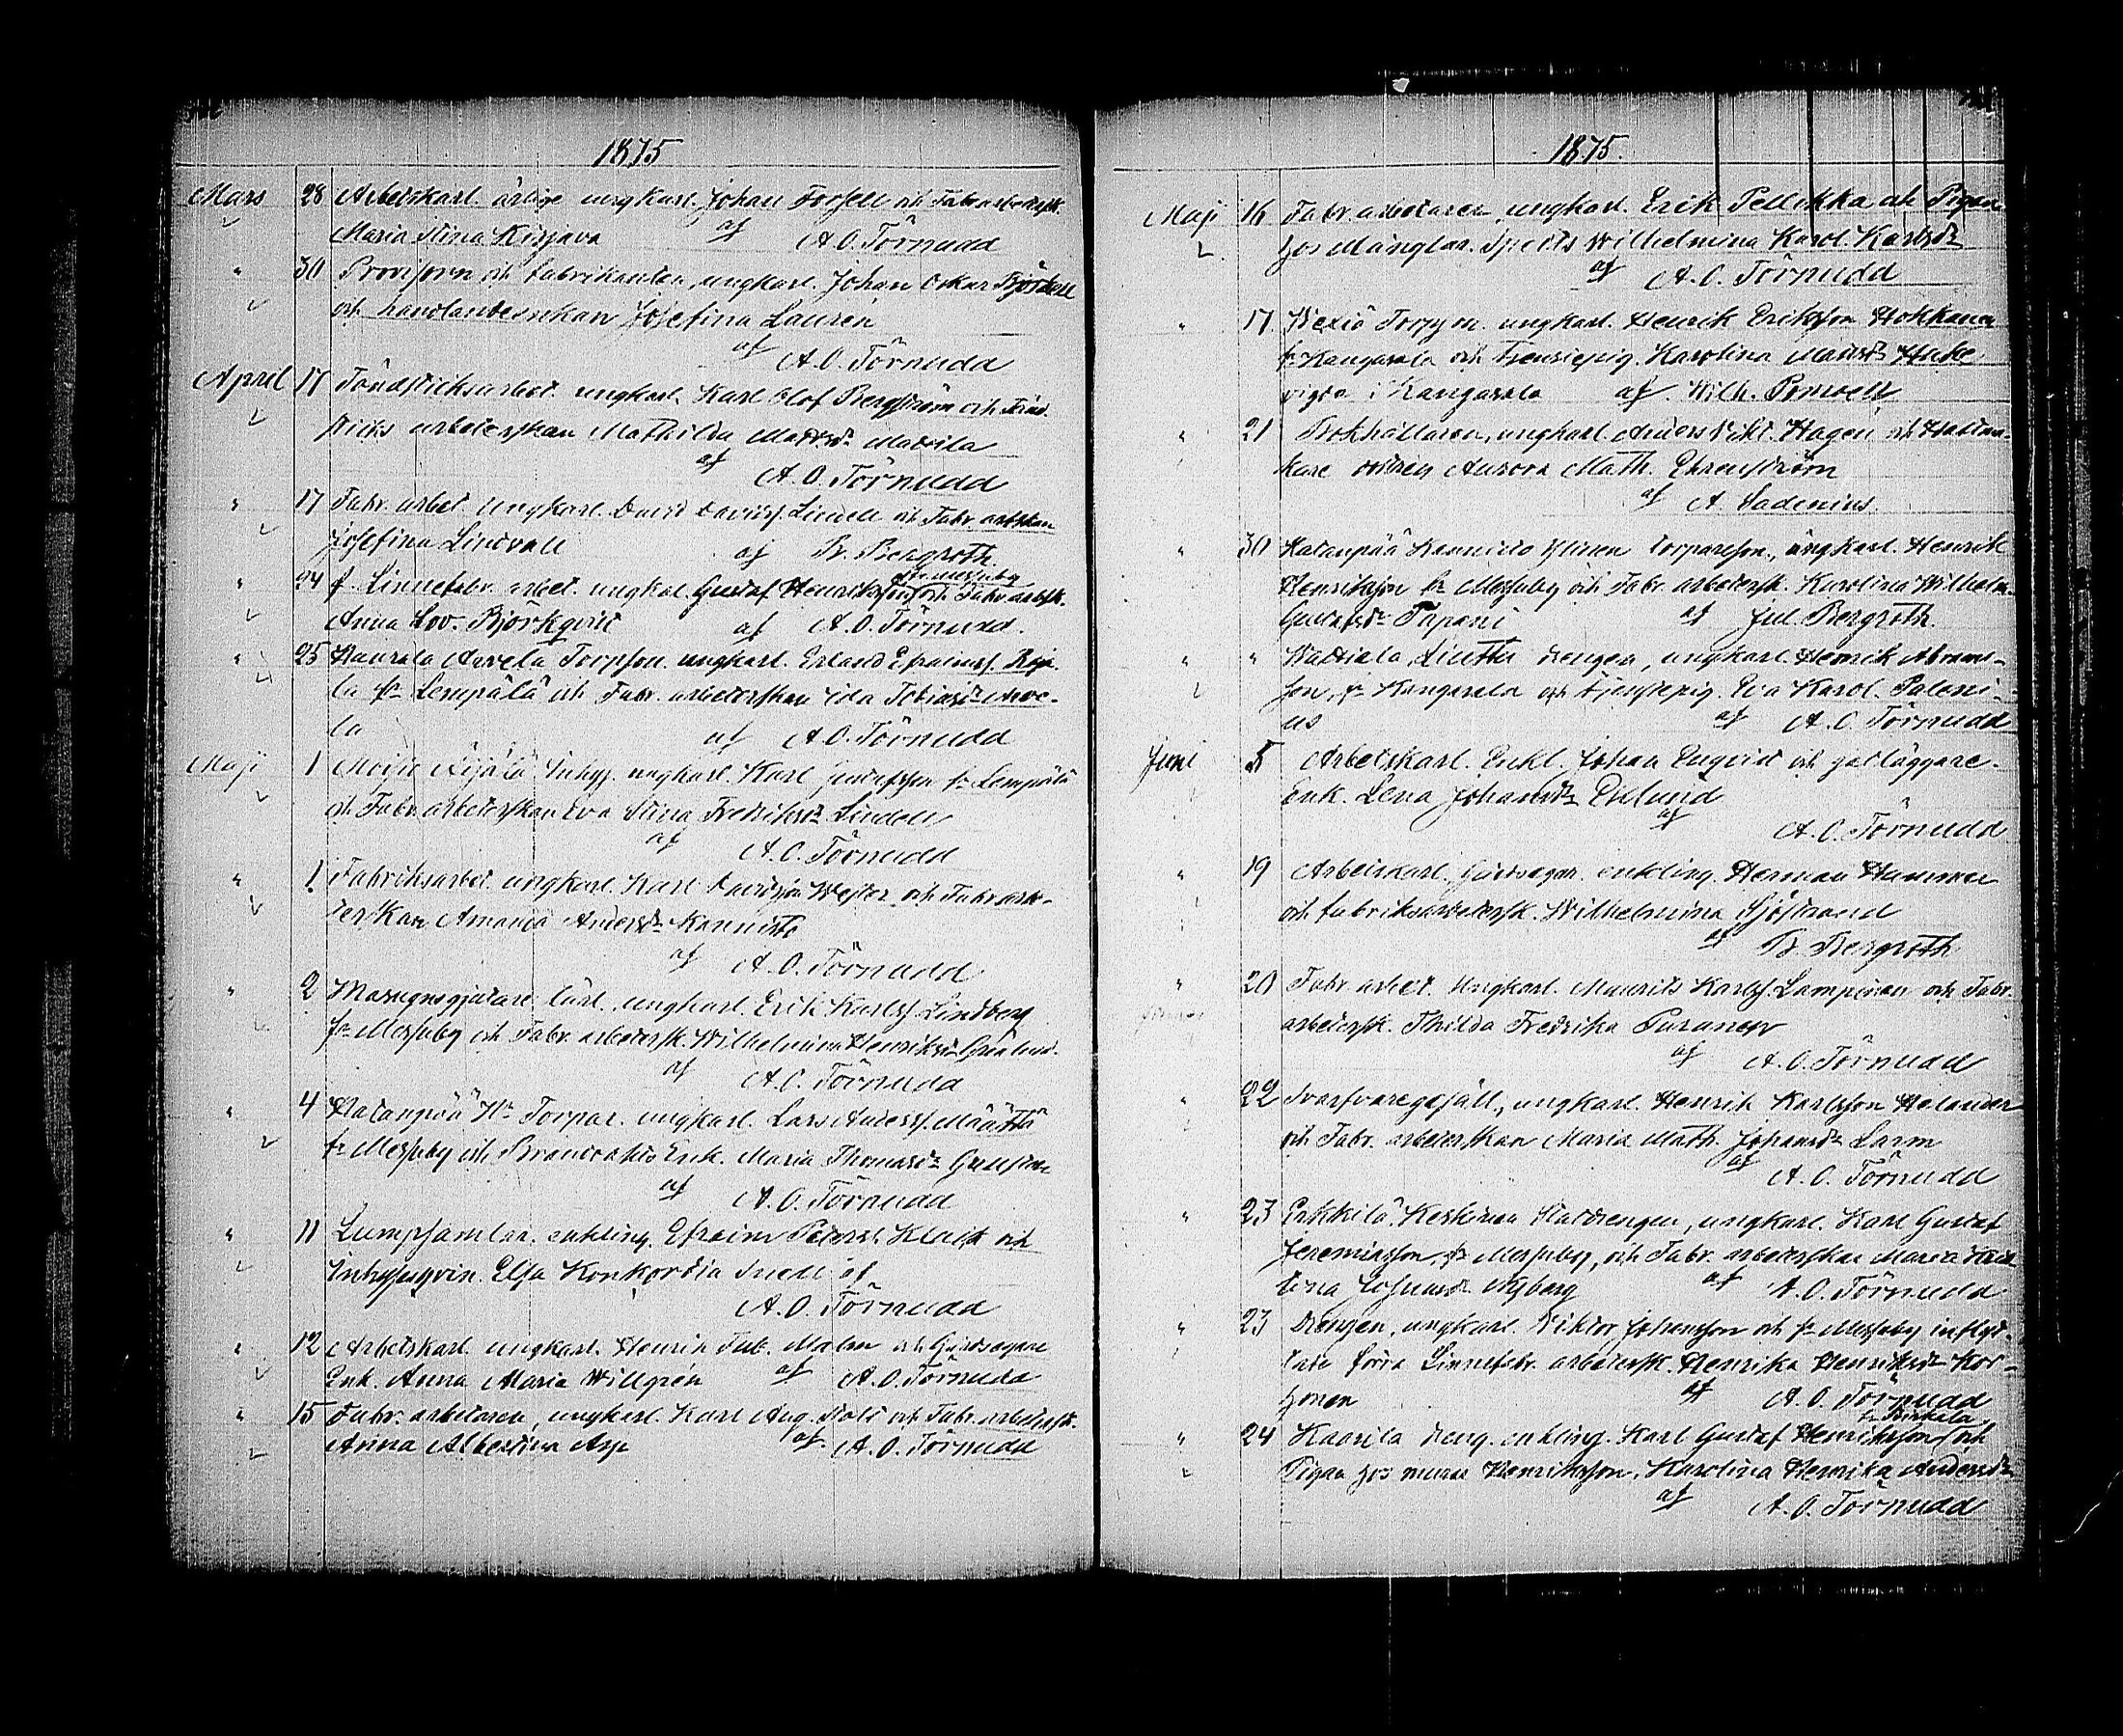 1875
Mars 28 Arbetskarl. ärlige ungkarl. Johan Forsell och Fabr. arbetersk.
Maria Stina Kirjava af A. O. Törnudd
" 30 Provisorn och fabrikanten, ungkarl. Johan Oskar
och handlandesenkan Josefina Laurén
af A. O. Törnudd
April 17 Tändsticksarbet. ungkarl. Karl Olof Bergström och Tänd-
sticks arbeterskan Mathilda Mattsdr Mattila
af A. O. Törnudd
" 17 Fabr. arbet. Ungkarl. David Davidss. Lindell och Fabr. arbskan
Josefina Lindvall af B. Bergroth
fr Messuby
" 24 f. Linnefabr. arbet. ungkarl. Gustaf Henriksson och Fabr. arbsk.
Anna Lov. Björkqvist af A. O. Törnudd.
" 25 Torpson. ungkarl. Erland Efraimss.
la fr Lempälä och Fabr. arbeterskan Ida Tobiasdr
la af A. O. Törnudd
Maji 1 Moisio Äijälä Inhys. ungkarl. Karl Gustafsson fr Lempälä
och Fabr. arbeterskan Eva Stina Fredriksdr Lindell
af A. O. Törnudd
" 1 Fabriksarbet. ungkarl. Karl Davidson Wester och Fabr. arb-
terskan Amanda Andersdr Kannisto
af A. O. Törnudd
" 2 Masugnsgjutare lärl. ungkarl. Erik Karlss. Lindberg
fr Messuby och Fabr. arbetersk. Wilhelmina Henriksdr Grönlund.
af A. O. Törnudd
" 4 Hatanpää Hn Torpar. ungkarl. Lars Anderss. Määttä
fr Messuby och Brandvakts Enk. Maria Thomasdr
af A. O. Törnudd
" 11 Lumpsamlar. enkling. Efraim Peterss. och
Inhysesqvin. Elsa Konkordia Snell af
A. O. Törnudd
" 12 Arbetskarl. ungkarl. Henrik Malm och Gårdsegare
Enk. Anna Maria Willgrén af A. O. Törnudd
" 15 Fabr. arbetaren, ungkarl. Karl Aug. och Fabr. arbetersk.
Anna Albertina Asp af A. O. Törnudd
1875.
Maji 16 Fabr. arbetaren, ungkarl. Erik Pellikka och Pigan
hos Månglar. Spects Wilhelmina Karol. Karlsdr
af A. O. Törnudd
" 17 Torpson. ungkarl. Henrik Eriksson Hokkanen
fr Kangasala och Karolina Mattsdr
vigda i Kangasala af Wilh.
" 21 Bokhållaren, ungkarl. Anders Vikt. Hagen och
Aurora Math. Ehrenström
af A. Ladenius
" 30 Hatanpää Kannisto torparesson, ungkarl. Henrik
Henriksson fr Messuby och Fabr. arbetersk. Karolina Wilhelm.
Gustafsdr Tapani af Jul. Bergroth.
" " Liuttu drengen, ungkarl. Henrik Abrams-
son, fr Kangasala och Eva Karol. Paleni-
us af A. O. Törnudd
Juni 5 Arbetskarl. Enkl. Johan Enqvist och gatläggare-
Enk. Lena Johansdr Edlund
af
A. O. Törnudd
" 19 Arbetskarl. Gårdsegar. enkling. Herman
och fabriksarbetersk. Wilhelmina Sjöstrand
af B. Bergroth
" 20 Fabr. arbet. Ungkarl. Maurits Karlss. Lampinen och Fabr.
arbetersk. Thilda Fredrika Puranen
af A. O. Törnudd
" 22 Svarfvaregesäll., ungkarl. Henrik Karlsson Helander
och Fabr. arbeterskan Maria Math. Johansdr Larm
af A. O. Törnudd
" 23 Erkkilä Keskinen Statdrengen, ungkarl. Karl Gustaf
Jeremiasson, fr Messuby, och Fabr. arbeterskan Maria
Nyberg af A. O. Törnudd
" 23 Drengen, ungkarl. Viktor Johansson och fr Messuby inflyt-
tade förra Linnefabr. arbetersk. Henrika Henriksdr Kor-
honen af A. O. Törnudd
fr Birkala
" 24 Kaarila dreng. enkling. Karl Gustaf Henriksson och
Pigan hos murar Henriksson, Karolina Henrika Andersdr
af A. O. Törnudd